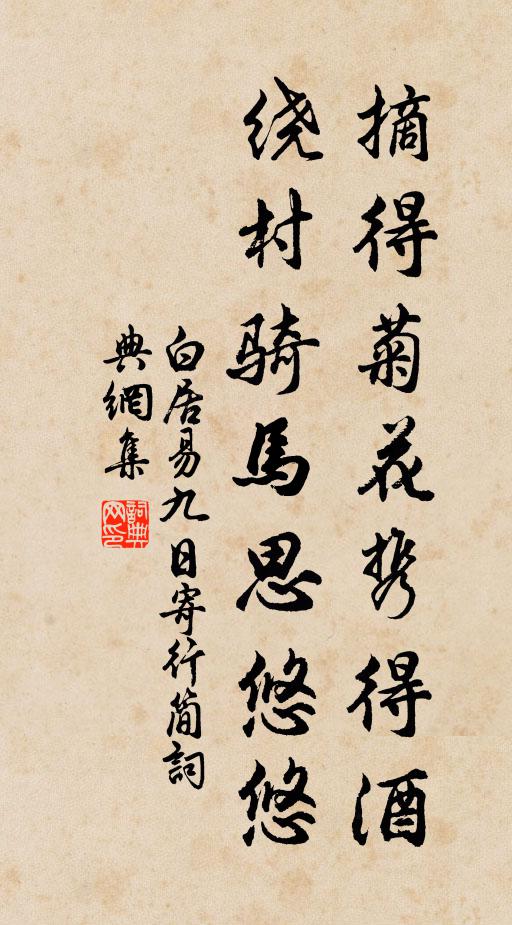 摘得菊花携得酒
绕村骑馬思悠悠
白居易九日寄行简詞
典網集
詞典网印